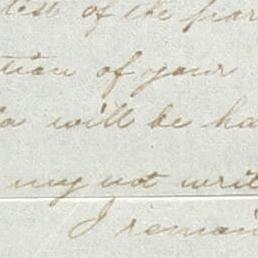 of the par
tion of your
will be ha
my not writ
I remain